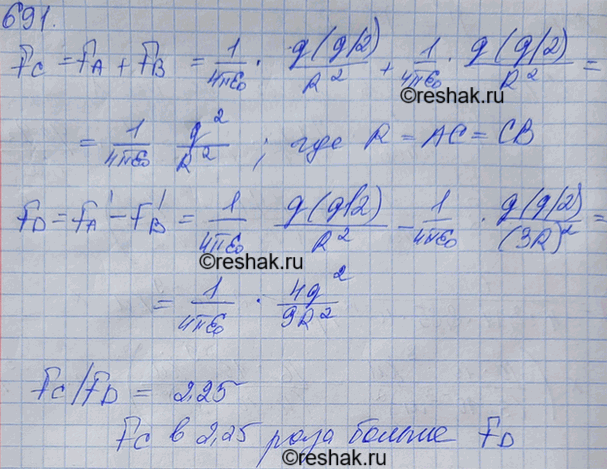 691.
F_C = F_A + F_B = 1/(4πε₀) · q(q/2)/R² + 1/(4πε₀) · q(q/2)/R² =
©reshak.ru
= 1/(4πε₀) q²/R² ; где R = AC = CB
F_D = F_A' - F_B' = 1/(4πε₀) q(q/2)/R² - 1/(4πε₀) · q(q/2)/(3R)² =
©reshak.ru
= 1/(4πε₀) · 4q²/9R²
©reshak.ru
F_C/F_D = 2,25
F_C в 2,25 раза больше F_D
©reshak.ru